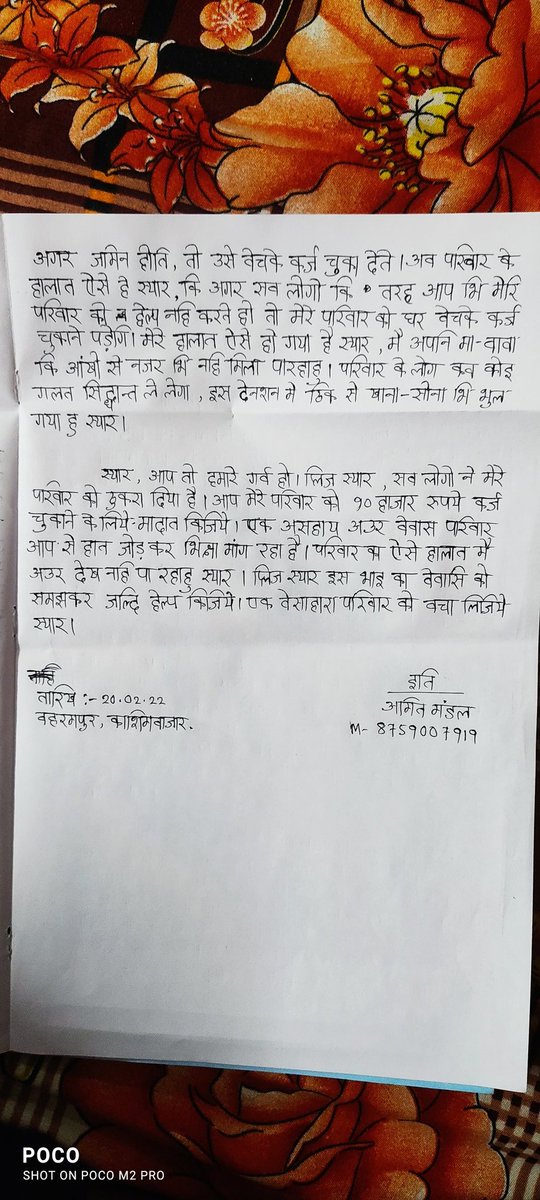 अगर जमिन होति, तो उसे बेचके कर्ज चुका देते। अब परिवार के
हालात ऐसे है स्यार, कि अगर सब लोगो कि तरह आप भि मेरि
परिवार को हेल्प नहि करते हो तो मेरे परिवार को घर बेचके कर्ज
चुकाने पड़ेगी। मेरे हालात ऐसे हो गया है स्यार, मै अपने मा-बाबा
कि आंखो से नजर भि नहि मिला पारहाहु। परिवार के लोग कब कोइ
गलत सिद्धान्त ले लेगा, इस टेनशन मे ठिक से खाना-सोना भि भुल
गया हु स्यार।
स्यार, आप तो हमारे गर्व हो। प्लिज स्यार, सब लोगो ने मेरे
परिवार को ठुकरा दिया है। आप मेरे परिवार को १० हाजार रुपये कर्ज
चुकाने के लिये मादात किजिये। एक असहाय अउर बेबास परिवार
आप से हात जोड़ कर भिक्षा मांग रहा है। परिवार का ऐसे हालात मै
अउर देख नहि पा रहाहु स्यार। प्लिज स्यार इस भाइ का बेबासि को
समझकर जल्दि हेल्प किजिये। एक बेसाहारा परिवार को बचा लिजिये
स्यार।
इति
तारिख :- 20.02.22
आमित मंडल
बहरमपुर, काशिमबाजार.
M- 8759007919
POCO
SHOT ON POCO M2 PRO